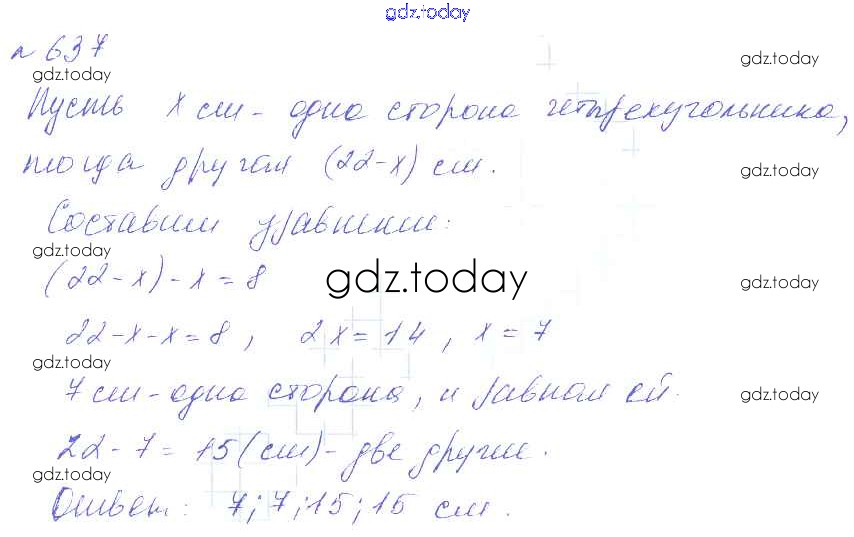 gdz.today
№ 637
gdz.today gdz.today
Пусть x см - одна сторона четырехугольника,
тогда другая (22-x) см.
gdz.today
Составим уравнение:
gdz.today
(22-x)-x=8
gdz.today gdz.today
22-x-x=8, 2x=14, x=7
gdz.today
7 см - одна сторона, и равная ей.
gdz.today
22-7=15 (см) - две другие.
gdz.today
Ответ: 7; 7; 15; 15 см.